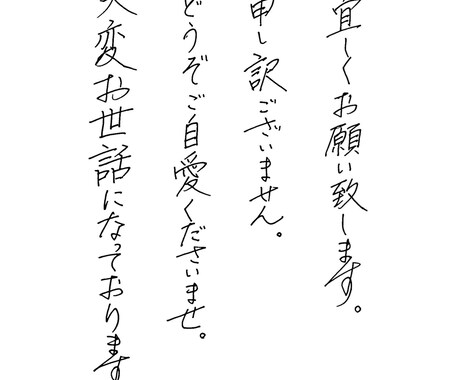 宜しくお願い致します。
申し訳ございません。
どうぞご自愛くださいませ。
大変お世話になっております